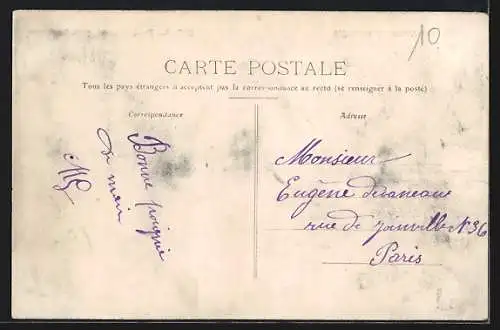 10
CARTE POSTALE
Tous les pays étrangers n'acceptent pas la correspondance au recto (se renseigner à la poste)
Correspondance
Adresse
Bonne poignée
de main
Monsieur
Eugène
rue de Joinville N° 36
Paris